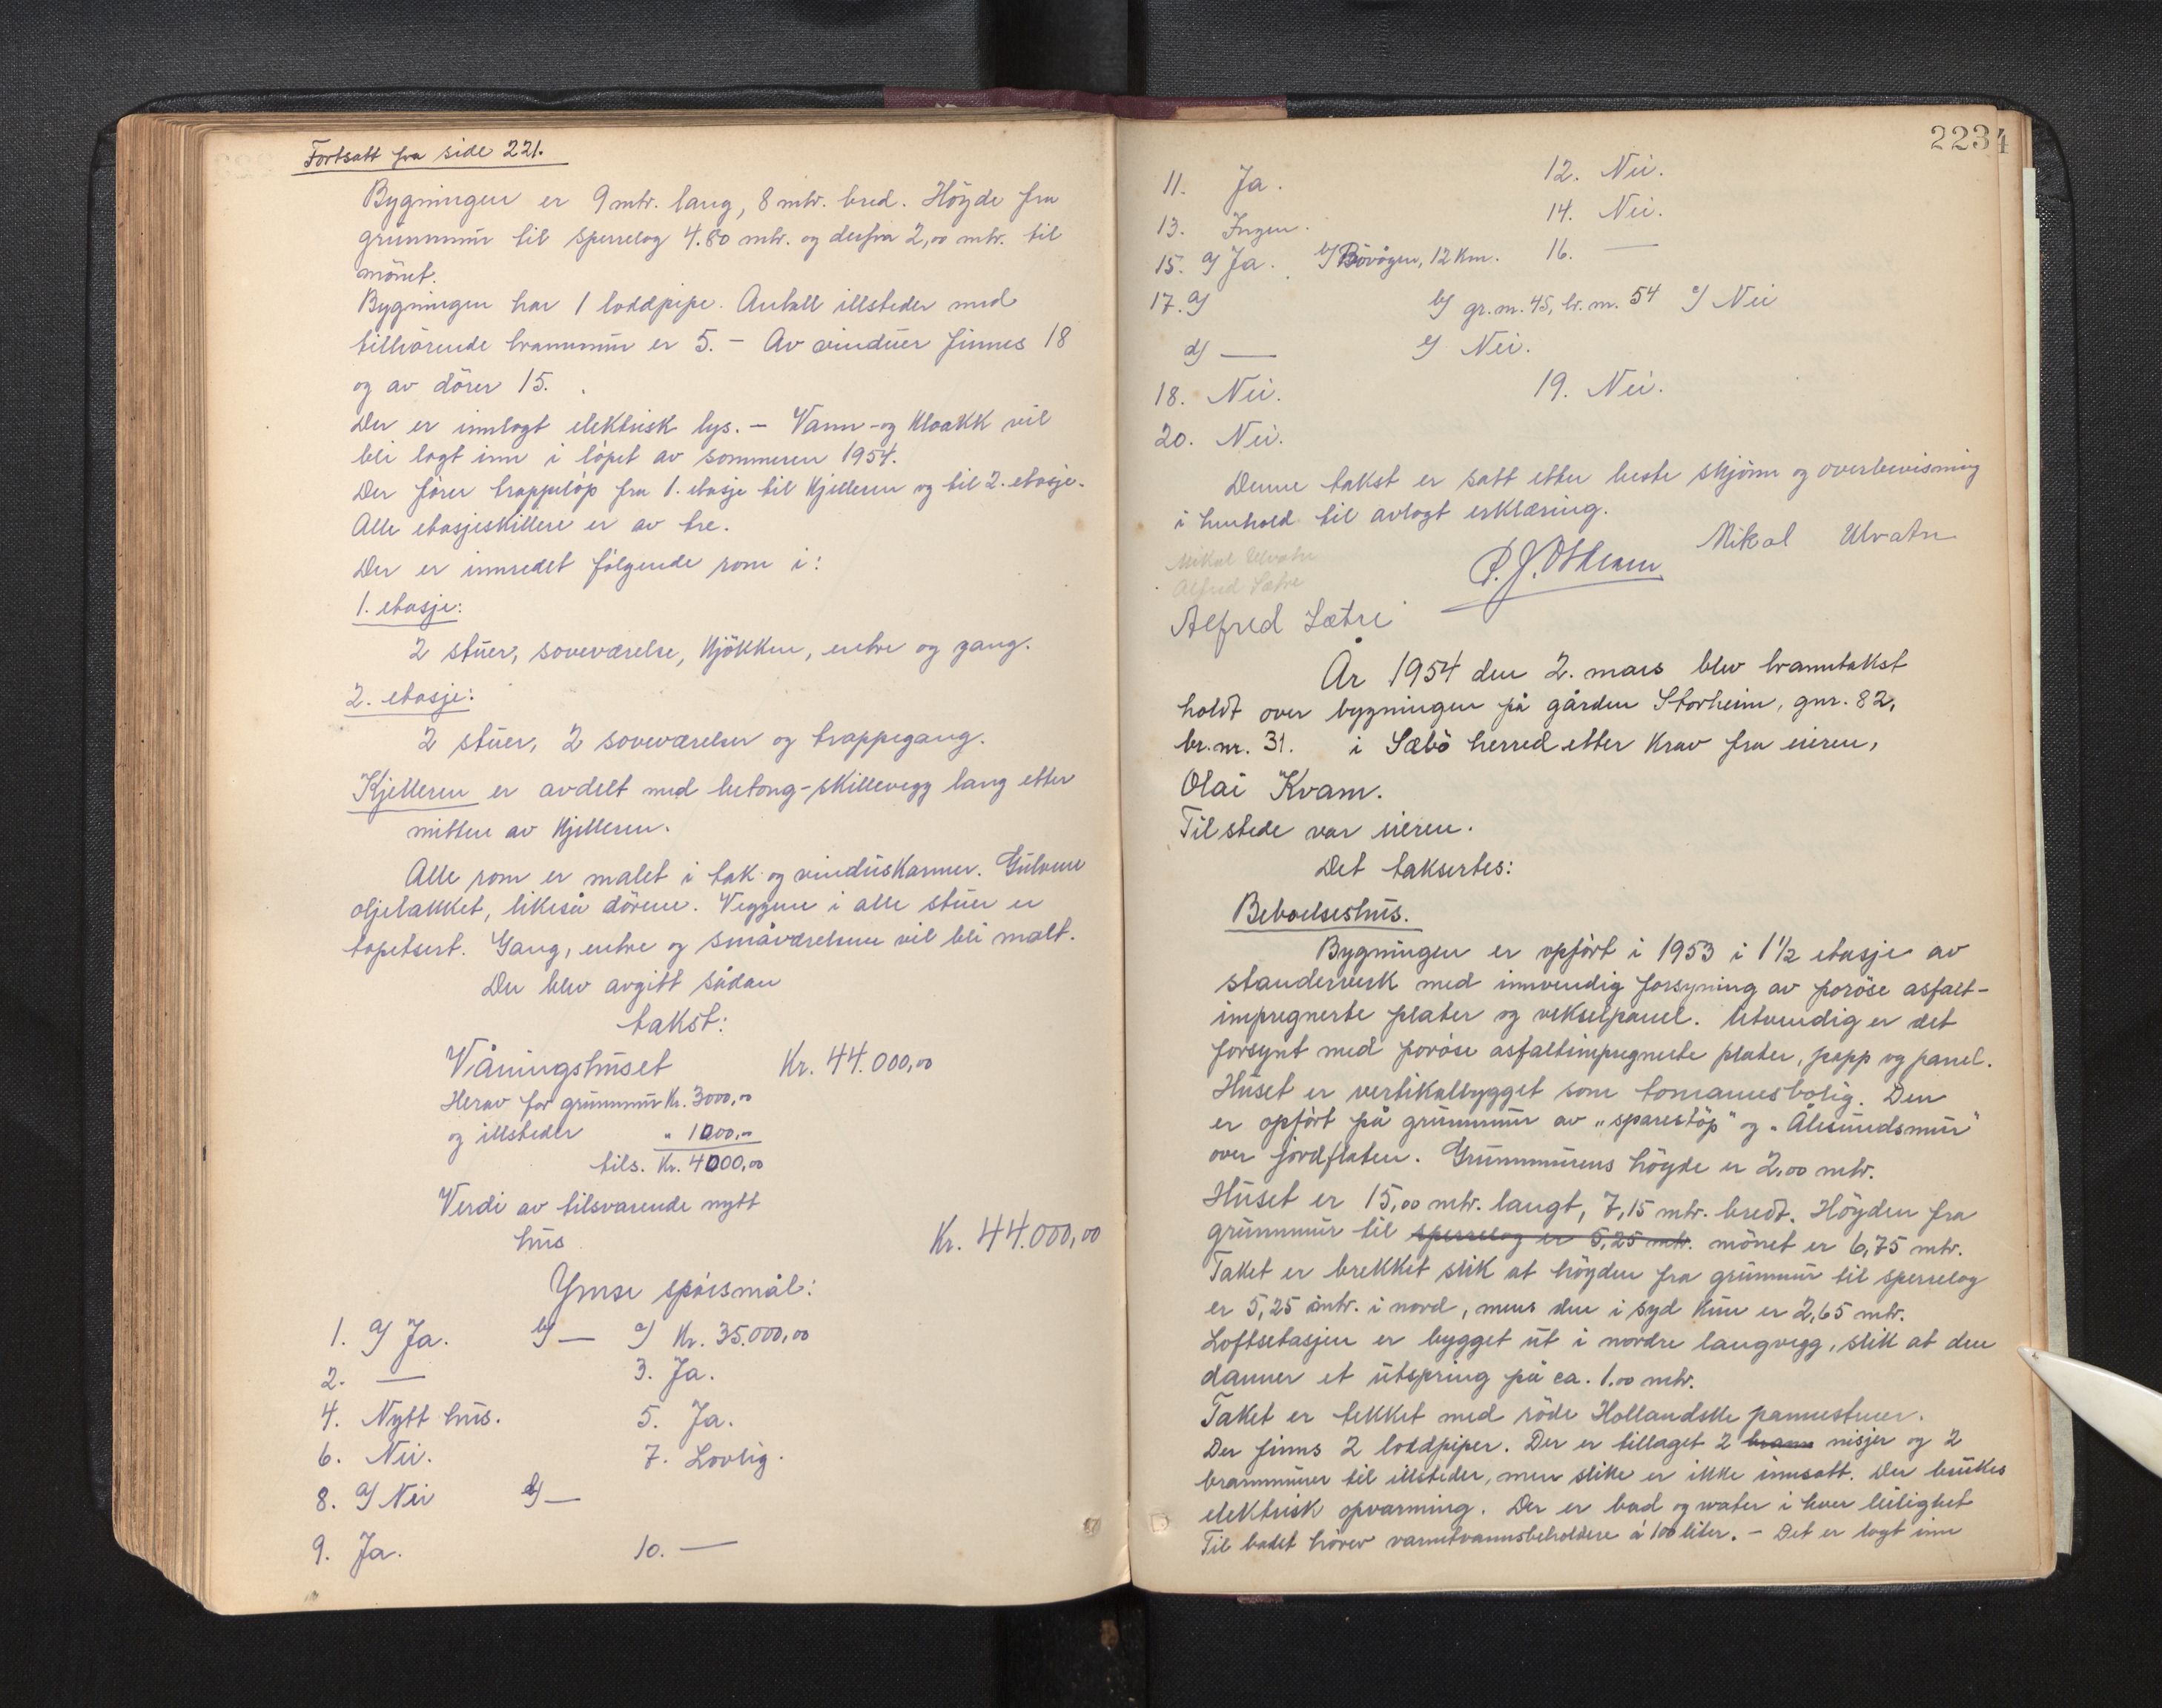 Fortsatt fra side 221.
Bygningen er 9 mtr. lang, 8 mtr. bred. Höyde fra
grunnmur til sperrelag 4.80 mtr. og derfra 2,00 mtr. til
mönet.
Bygningen har 1 loddpipe. Antall illsteder med
tilhörende brannmur er 5. – Av vinduer finnes 18
og av dörer 15.
Der er innlagt elektrisk lys. – Vann- og kloakk vil
bli lagt inn i löpet av sommeren 1954.
Der förer trappelöp fra 1. etasje til kjelleren og til 2. etasje.
Alle etasjeskillere er av tre.
Der er innredet fölgende rom i:
1. etasje:
2 stuer, soveværelse, kjökken, entre og gang.
2. etasje:
2 stuer, 2 soveværelser og trappegang.
Kjelleren er avdelt med betong-skillevegg lang etter
mitten av kjelleren.
Alle rom er malet i tak og vinduskarmer. Gulvene
oljelakket, likeså dörene. Veggene i alle stuer er
tapetsert. Gang, entre og småværelsene vil bli malt.
Der blev avgitt sådan
takst:
Våningshuset Kr. 44.000,00
Herav for grunnmur Kr. 3000,00
og illsteder " 1000,00
tils. Kr. 4000,00
Verdi av tilsvarende nytt
hus Kr. 44.000,00
Ymse spörsmål:
1. a/ Ja. b/ — c/ Kr. 35.000,00
2. — 3. Ja.
4. Nytt hus. 5. Ja.
6. Nei. 7. Lovlig.
8. a/ Nei b/ —
9. Ja. 10. —
2234
11. Ja. 12. Nei.
13. Ingen. 14. Nei.
15. a/ Ja. b/ Bövågen, 12 km. 16. —
17. a/ b/ gr.m. 45, br.m. 54 c/ Nei
d/ — e/ Nei.
18. Nei. 19. Nei.
20. Nei.
Denne takst er satt etter beste skjönn og overbevisning
i henhold til avlagt erklæring.
Mikal Ulvatn
Mikal Ulvatn
Alfred Sætre
Alfred Sætre
År 1954 den 2. mars blev branntakst
holdt over bygningen på gården Storheim, gnr. 82,
br.nr. 31. i Sæbö herred etter krav fra eieren,
Olai Kvam.
Tilstede var eieren.
Det taksertes:
Beboelseshus.
Bygningen er opfört i 1953 i 1 1/2 etasje av
standerverk med innvendig forsyning av poröse asfalt-
impregnerte plater og vekselpanel. Utvendig er det
forsynt med poröse asfaltimpregnerte plater, papp og panel.
Huset er vertikalbygget som tomannesbolig. Den
er opfört på grunnmur av „sparestöp" og „Ålesundsmur"
over jordflaten. Grunnmurens höyde er 2,00 mtr.
Huset er 15,00 mtr. langt, 7,15 mtr. bredt. Höyden fra
grunnmur til sperrelag er 5,25 mtr. mönet er 6,75 mtr.
Taket er brekket slik at höyden fra grunnmur til sperrelag
er 5,25 mtr. i nord, mens den i syd kun er 2,65 mtr.
Loftsetasjen er bygget ut i nordre langvegg, slik at den
danner et utspring på ca. 1.00 mtr.
Taket er tekket med röde Hollandske pannestener.
Der finns 2 loddpiper. Der er tillaget 2 brann nisjer og 2
brannmurer til illsteder, men slike er ikke innsatt. Der brukes
elektrisk opvarming. Der er bad og water i hver leilighet
Til badet hörer varmtvannsbeholdere á 100 liter. – Det er lagt inn